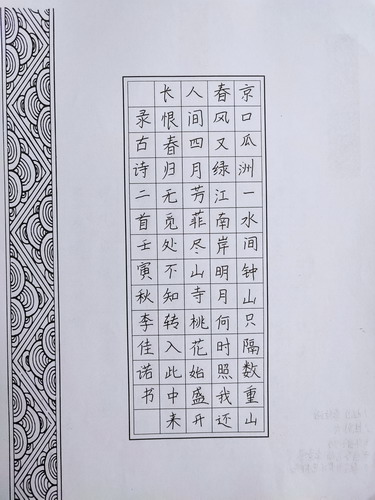 京口瓜洲一水间钟山只隔数重山
春风又绿江南岸明月何时照我还
人间四月芳菲尽山寺桃花始盛开
长恨春归无觅处不知转入此中来
录古诗二首壬寅秋李佳诺书